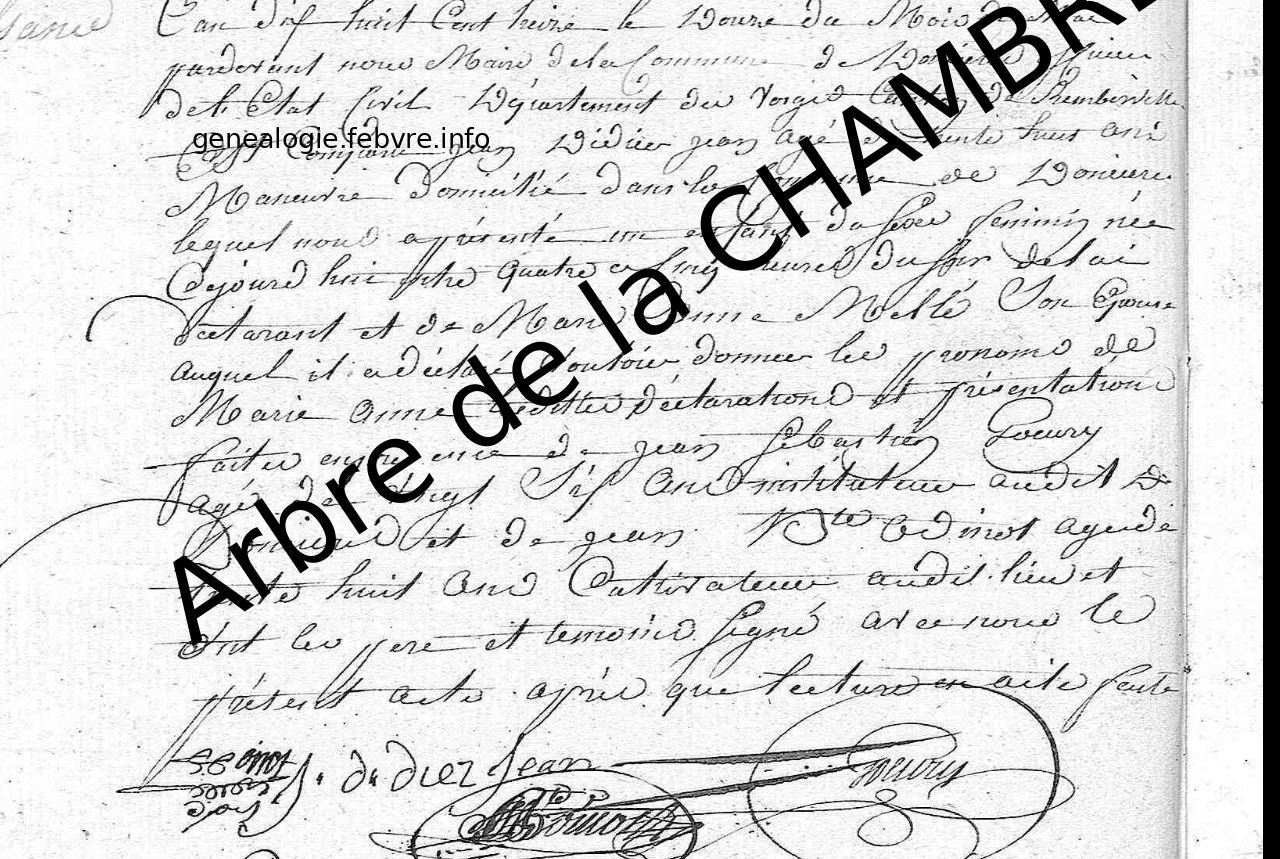 L'an dix huit Cent treize le Douze du Mois de Mai
pardevant nous Maire de la Commune de officier
de l'Etat Civil Département des Vosges Canton de Rambervillers
genealogie.febvre.info
Comparu jean Didier jean agé de trente huit ans
Manouvrie domicilié dans la Commune de Doncieres
lequel nous a présenté un enfant du sexe feminin née
Cejourd huit entre quatre a Cinq heures du soir de lui
declarant et de Marie Anne Mellé Son Epouse
auquel il a déclaré vouloir donner les pronoms de
Marie anne lesdittes déclarations et présentations
faites en presence de jean Sébastien Loeury
agé de vingt Six Ans instituteur audit D
Doncieres et de jean Bte Edinot agé de
trente huit Ans Cultivateur audit lieu et
ont les pere et temoins signé avec nous le
présent acte aprés que lecture en a été faite
didiez Jean
Loeury
Arbre de la CHAMBRE